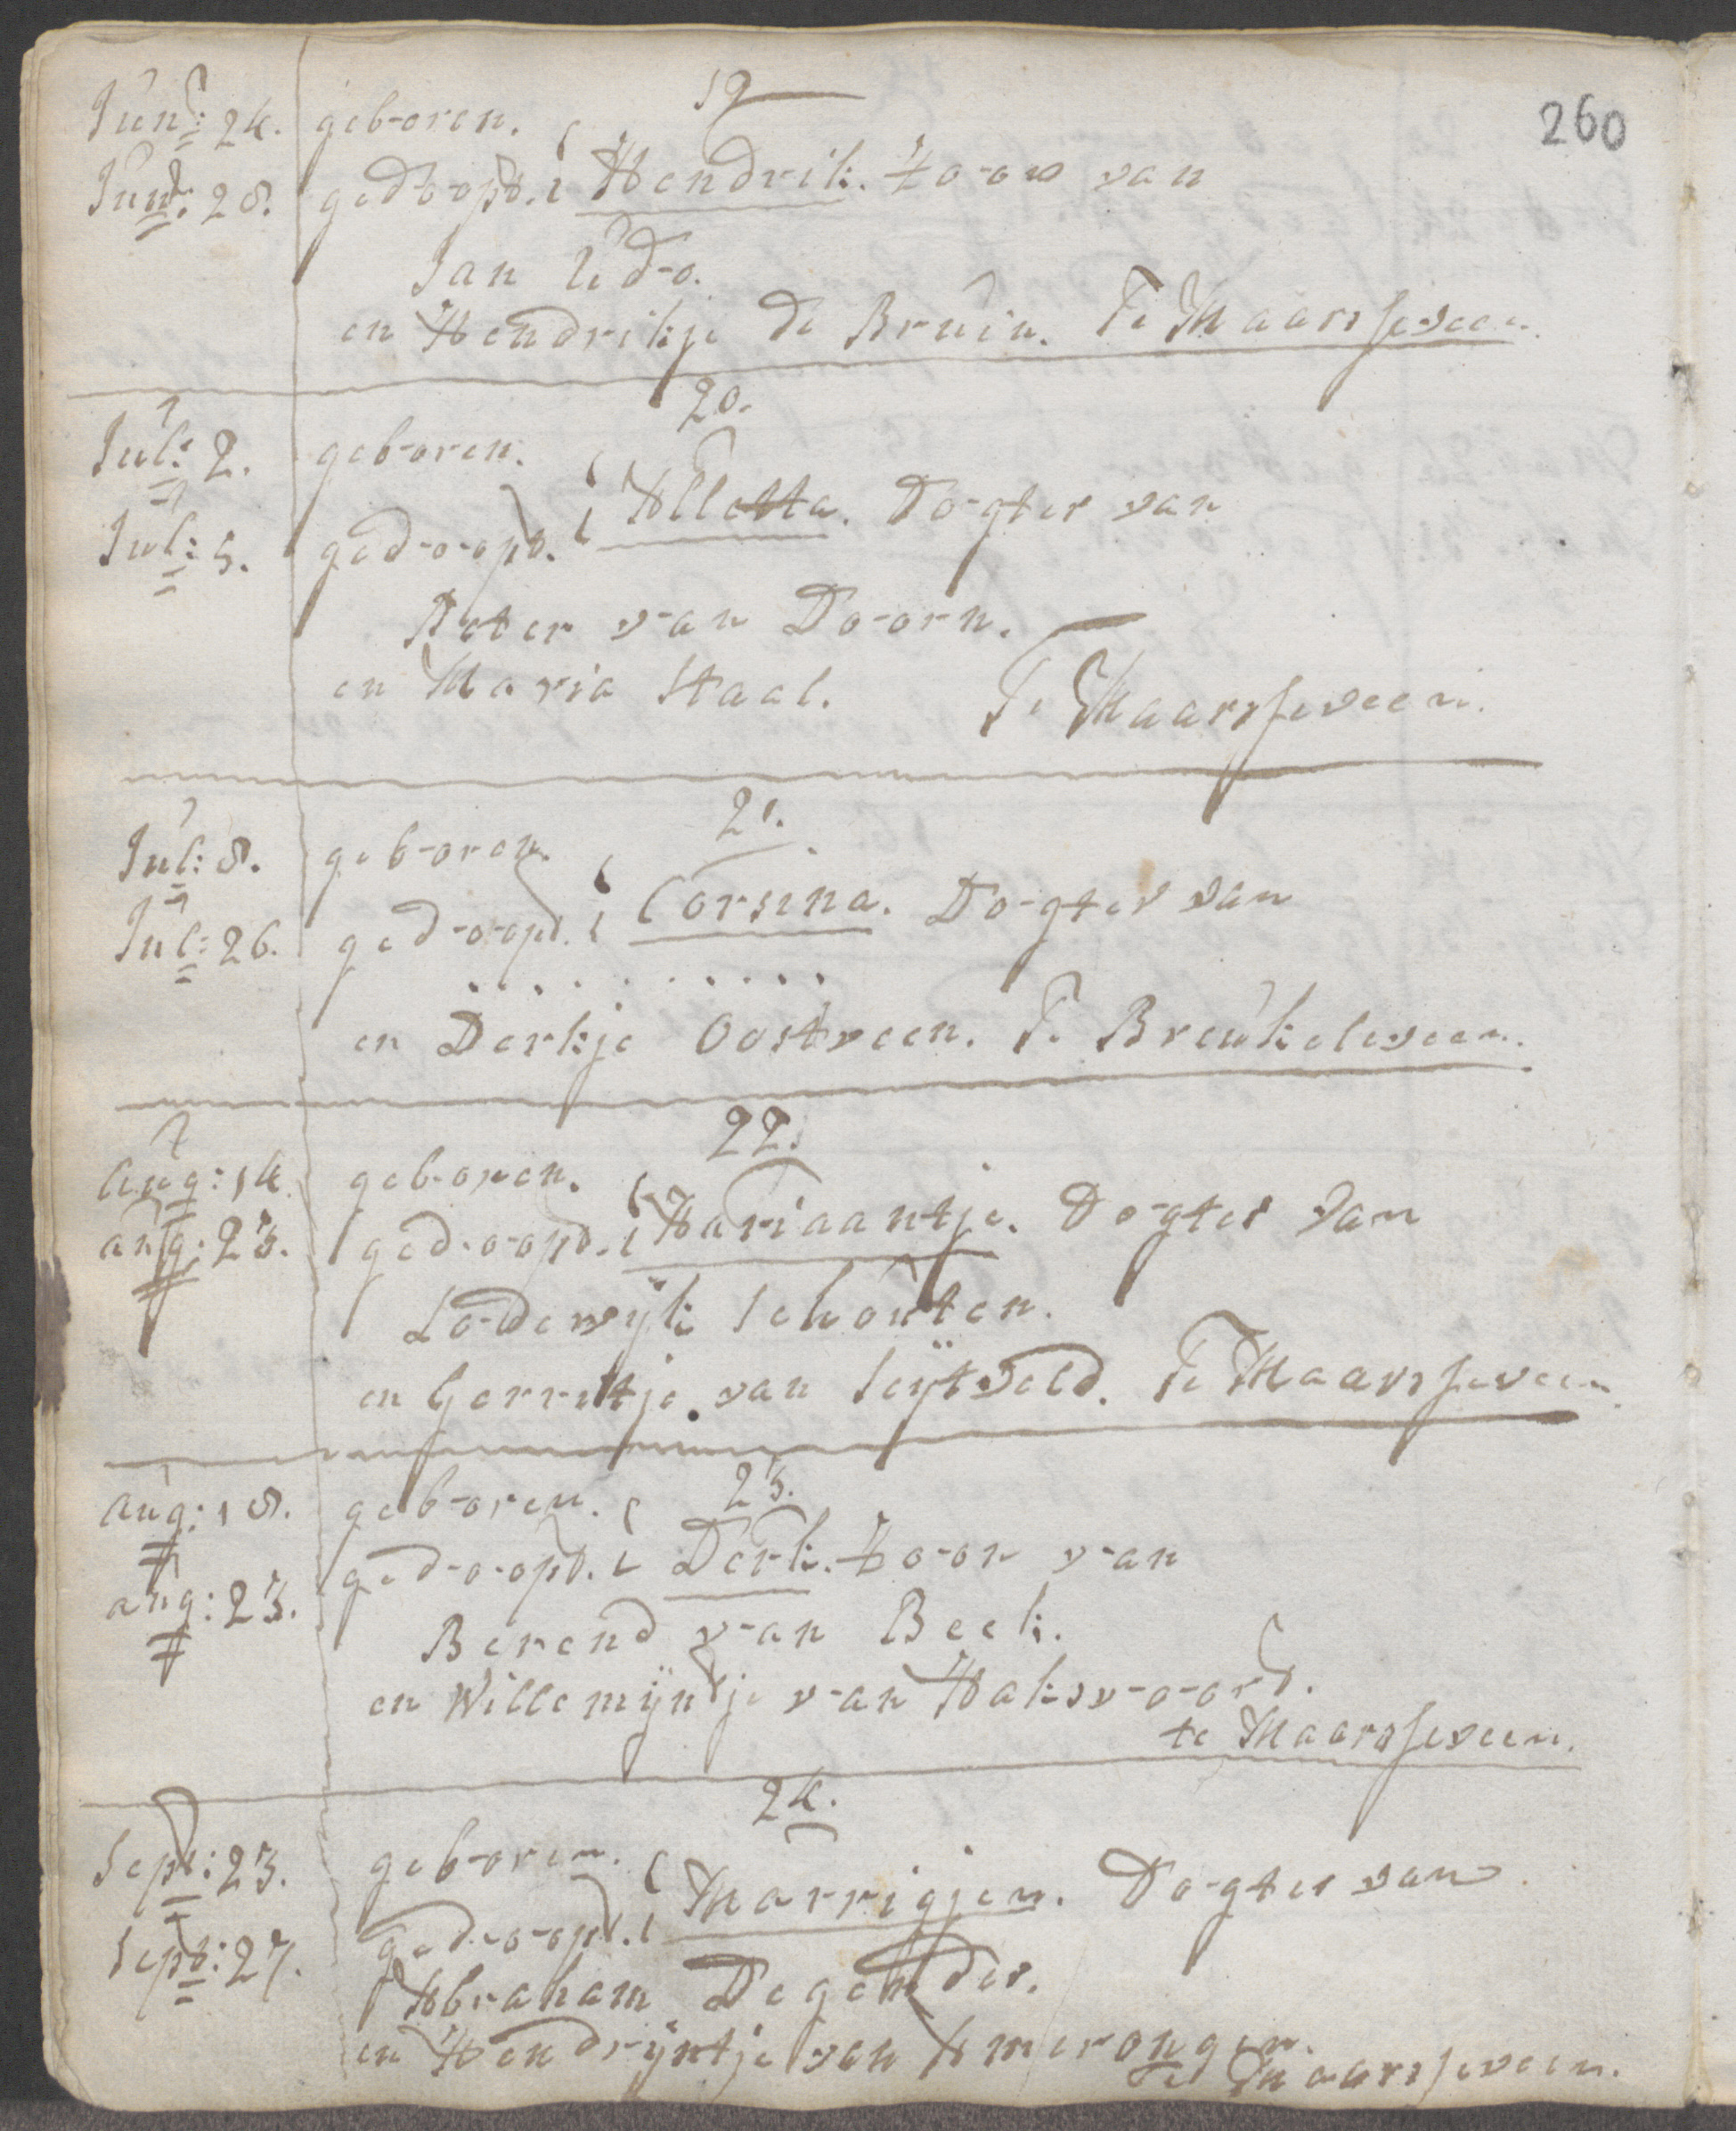 260
19
Jun: 24. geboren.
Jun: 28. gedoopt. Hendrik. Zoon van
Jan Udo.
en Hendrikje de Bruin. Te Maarsseveen.
20.
Jul: 2. geboren.
Jul: 5. gedoopt. Aletta. Dogter van
Peter van Doorn.
en Maria Staal. Te Maarsseveen.
21.
Jul: 8. geboren.
Jul: 26. gedoopt. Corsina. Dogter van
...........
en Derkje Oostveen. Te Breukeleveen.
22.
Aug: 14. geboren.
Aug: 23. gedoopt. Hariaantje. Dogter van
Lodewijk Schouten.
en Gerritje van Seijtveld. Te Maarsseveen.
23.
Aug: 18. geboren.
Aug: 23. gedoopt. Derk. Zoon van
Berend van Beek.
en Willemijntje van Haksvoord.
te Maarsseveen.
24.
Sept: 23. geboren.
Sept: 27. gedoopt. Marrigjen. Dogter van
Abraham Degender.
en Hendrijntje van Amerongen.
Te Maarsseveen.